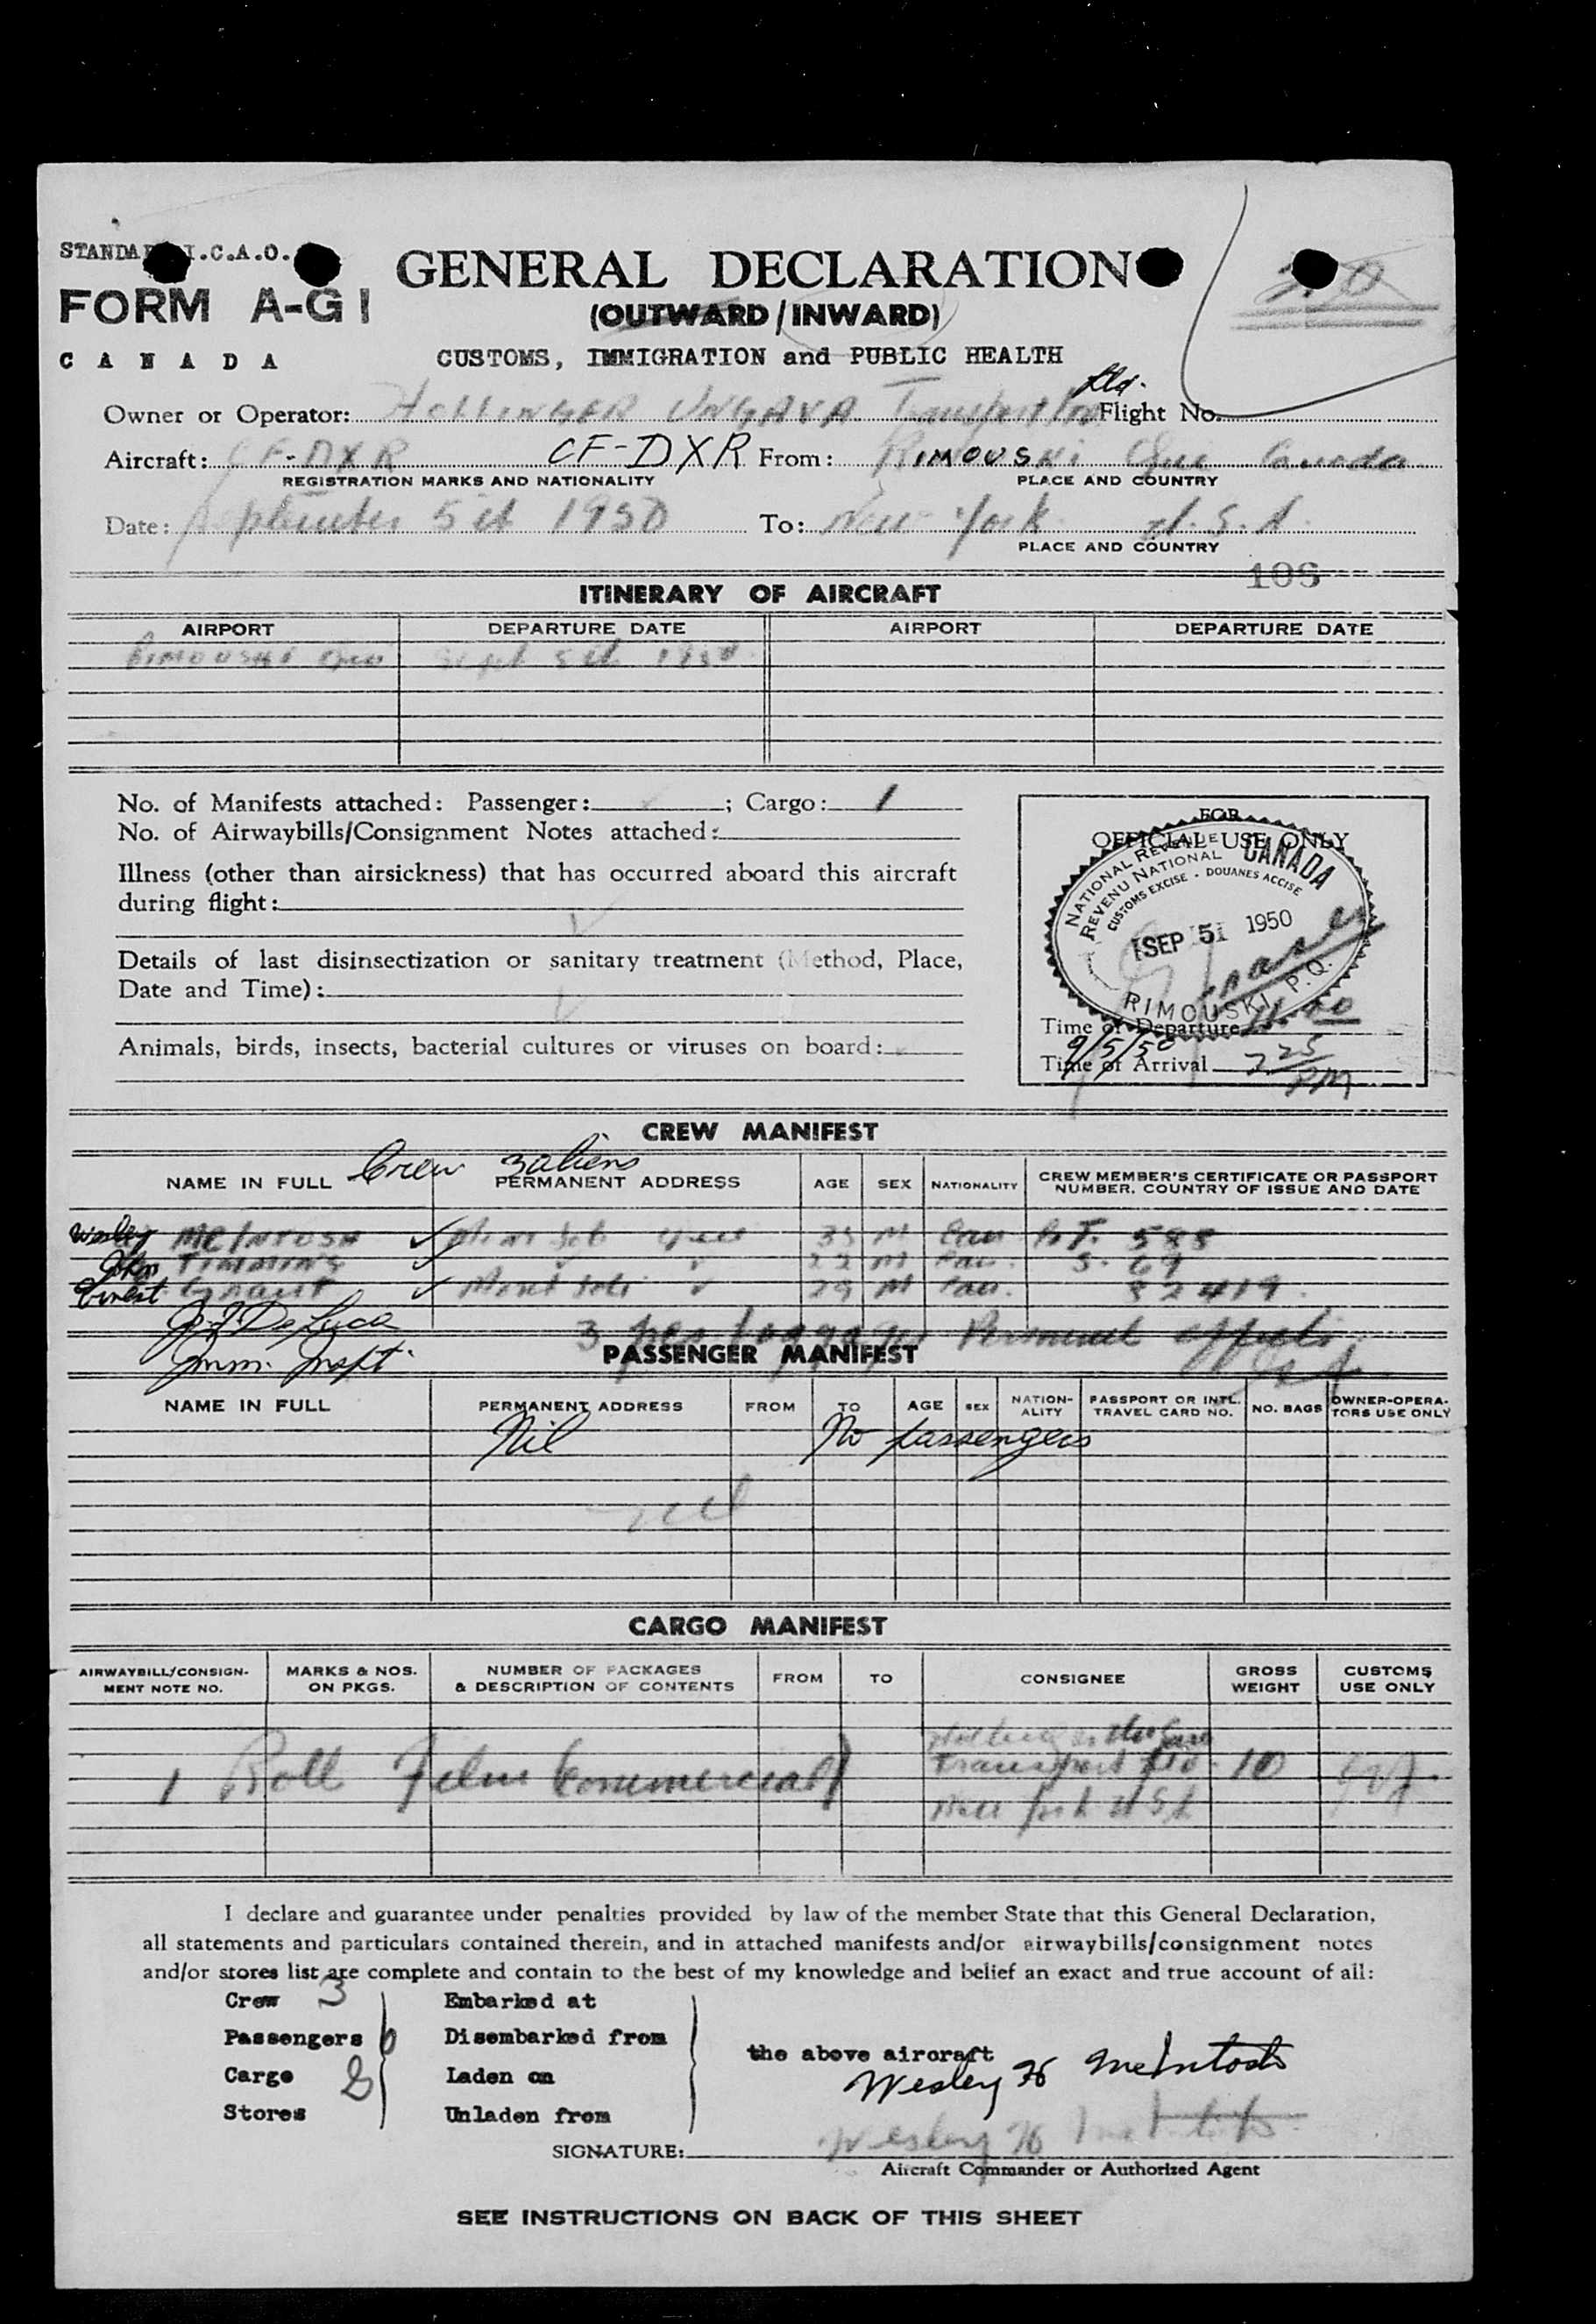 STANDA I.C.A.O.
FORM A-G1
CANADA
GENERAL DECLARATION
(OUTWARD / INWARD)
CUSTOMS, IMMIGRATION and PUBLIC HEALTH
Owner or Operator: HOLLINGER UNGAVA Transport Ltd. Flight No.
Aircraft: CF-DXR CF-DXR From: RIMOUSKI Que Canada
REGISTRATION MARKS AND NATIONALITY PLACE AND COUNTRY
Date: September 5th 1950 To: New York U.S.A.
PLACE AND COUNTRY
108
ITINERARY OF AIRCRAFT
AIRPORT DEPARTURE DATE AIRPORT DEPARTURE DATE
RIMOUSKI Que Sept 5th 1950
No. of Manifests attached: Passenger: ; Cargo: 1
No. of Airwaybills/Consignment Notes attached:
Illness (other than airsickness) that has occurred aboard this aircraft
during flight:
Details of last disinsectization or sanitary treatment (Method, Place,
Date and Time):
Animals, birds, insects, bacterial cultures or viruses on board:
FOR
OFFICIAL USE ONLY
NATIONAL REVENUE CANADA
REVENU NATIONAL
CUSTOMS EXCISE - DOUANES ACCISE
SEP 5 1950
RIMOUSKI, P.Q.
Time of Departure
9/5/50
Time of Arrival 2 25 PM
CREW MANIFEST
Crew 3 aliens
NAME IN FULL PERMANENT ADDRESS AGE SEX NATIONALITY CREW MEMBER'S CERTIFICATE OR PASSPORT NUMBER, COUNTRY OF ISSUE AND DATE
Wesley MCINTOSH Mont Joli Que 35 M Can 588
John TIMMINS 22 M Can. S. 69
Ernest Grant Mont Joli 29 M Can. 82419
J. J. De Luca 3 pcs luggage Personal effects
Imm. Inspt.
PASSENGER MANIFEST
NAME IN FULL PERMANENT ADDRESS FROM TO AGE SEX NATION-ALITY PASSPORT OR INTL. TRAVEL CARD NO. NO. BAGS OWNER-OPERA-TORS USE ONLY
Nil No passengers
nil
CARGO MANIFEST
AIRWAYBILL/CONSIGN-MENT NOTE NO. MARKS & NOS. ON PKGS. NUMBER OF PACKAGES & DESCRIPTION OF CONTENTS FROM TO CONSIGNEE GROSS WEIGHT CUSTOMS USE ONLY
Hollinger Ungava
1 Roll Film Commercial Transport Ltd. 10
New York U S A
I declare and guarantee under penalties provided by law of the member State that this General Declaration,
all statements and particulars contained therein, and in attached manifests and/or airwaybills/consignment notes
and/or stores list are complete and contain to the best of my knowledge and belief an exact and true account of all:
Crew 3 Embarked at
Passengers 0 Disembarked from
the above aircraft
Cargo Laden on
Wesley H McIntosh
Stores Unladen from
Wesley H McIntosh
SIGNATURE:
Aircraft Commander or Authorized Agent
SEE INSTRUCTIONS ON BACK OF THIS SHEET